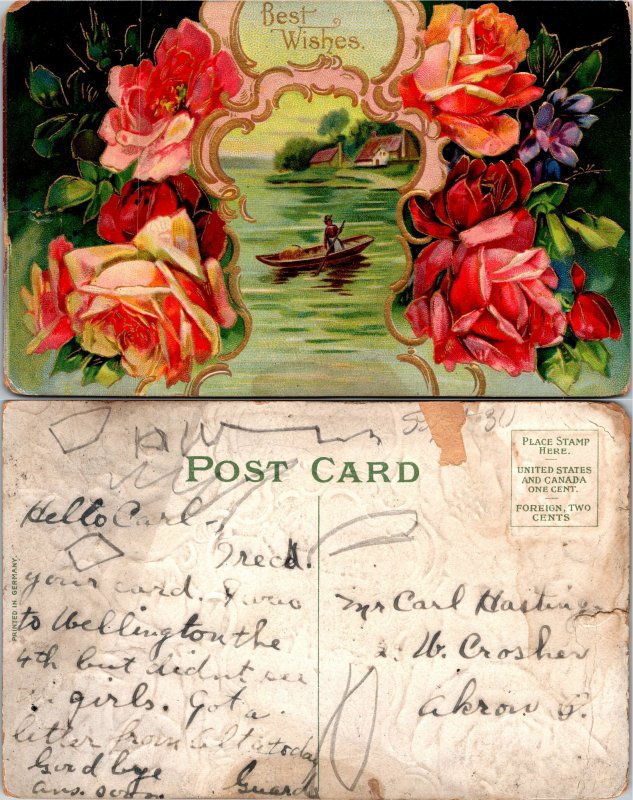 Best
Wishes.
POST CARD
PLACE STAMP
HERE.
UNITED STATES
AND CANADA
ONE CENT.
FOREIGN, TWO
CENTS
PRINTED IN GERMANY.
Hello Carl
I recd.
your card. I was
to Wellington the
4th but didnt see
girls. Got a
letter from today
Good bye
ans. soon.
Mr Carl Hastings
W. Crosher
Akron O.